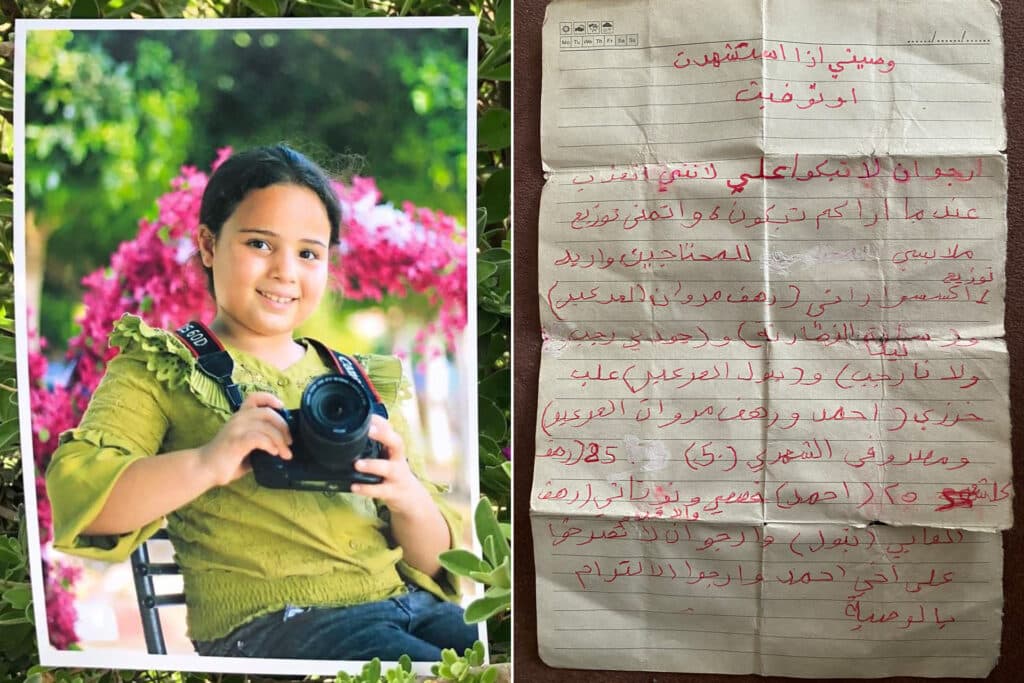 EOS 60D
Canon
Mo Tu We Th Fr Sa Su
....../....../......
وصيتي اذا استشهدت
او توفيت
ارجو ان لا تبكوا علي لانني اتعذب
عند ما اراكم تبكون ، واتمنى توزيع
ملابسي للمحتاجين واريد
توزيع
اكسسواراتي ( رهف مروان العرعير)
و( ) و( جودي رجب
لينا
ولانا رجب) و( بتول العرعير) علب
خرزي ( احمد ورهف مروان العرعير)
ومصروفي الشهري (50) 25 (رهف
25 (احمد) قصصي ودفاتري (رهف
العابي (بتول) وارجو ان لا تصرخوا
على أخي احمد وارجوا الالتزام
بالوصية